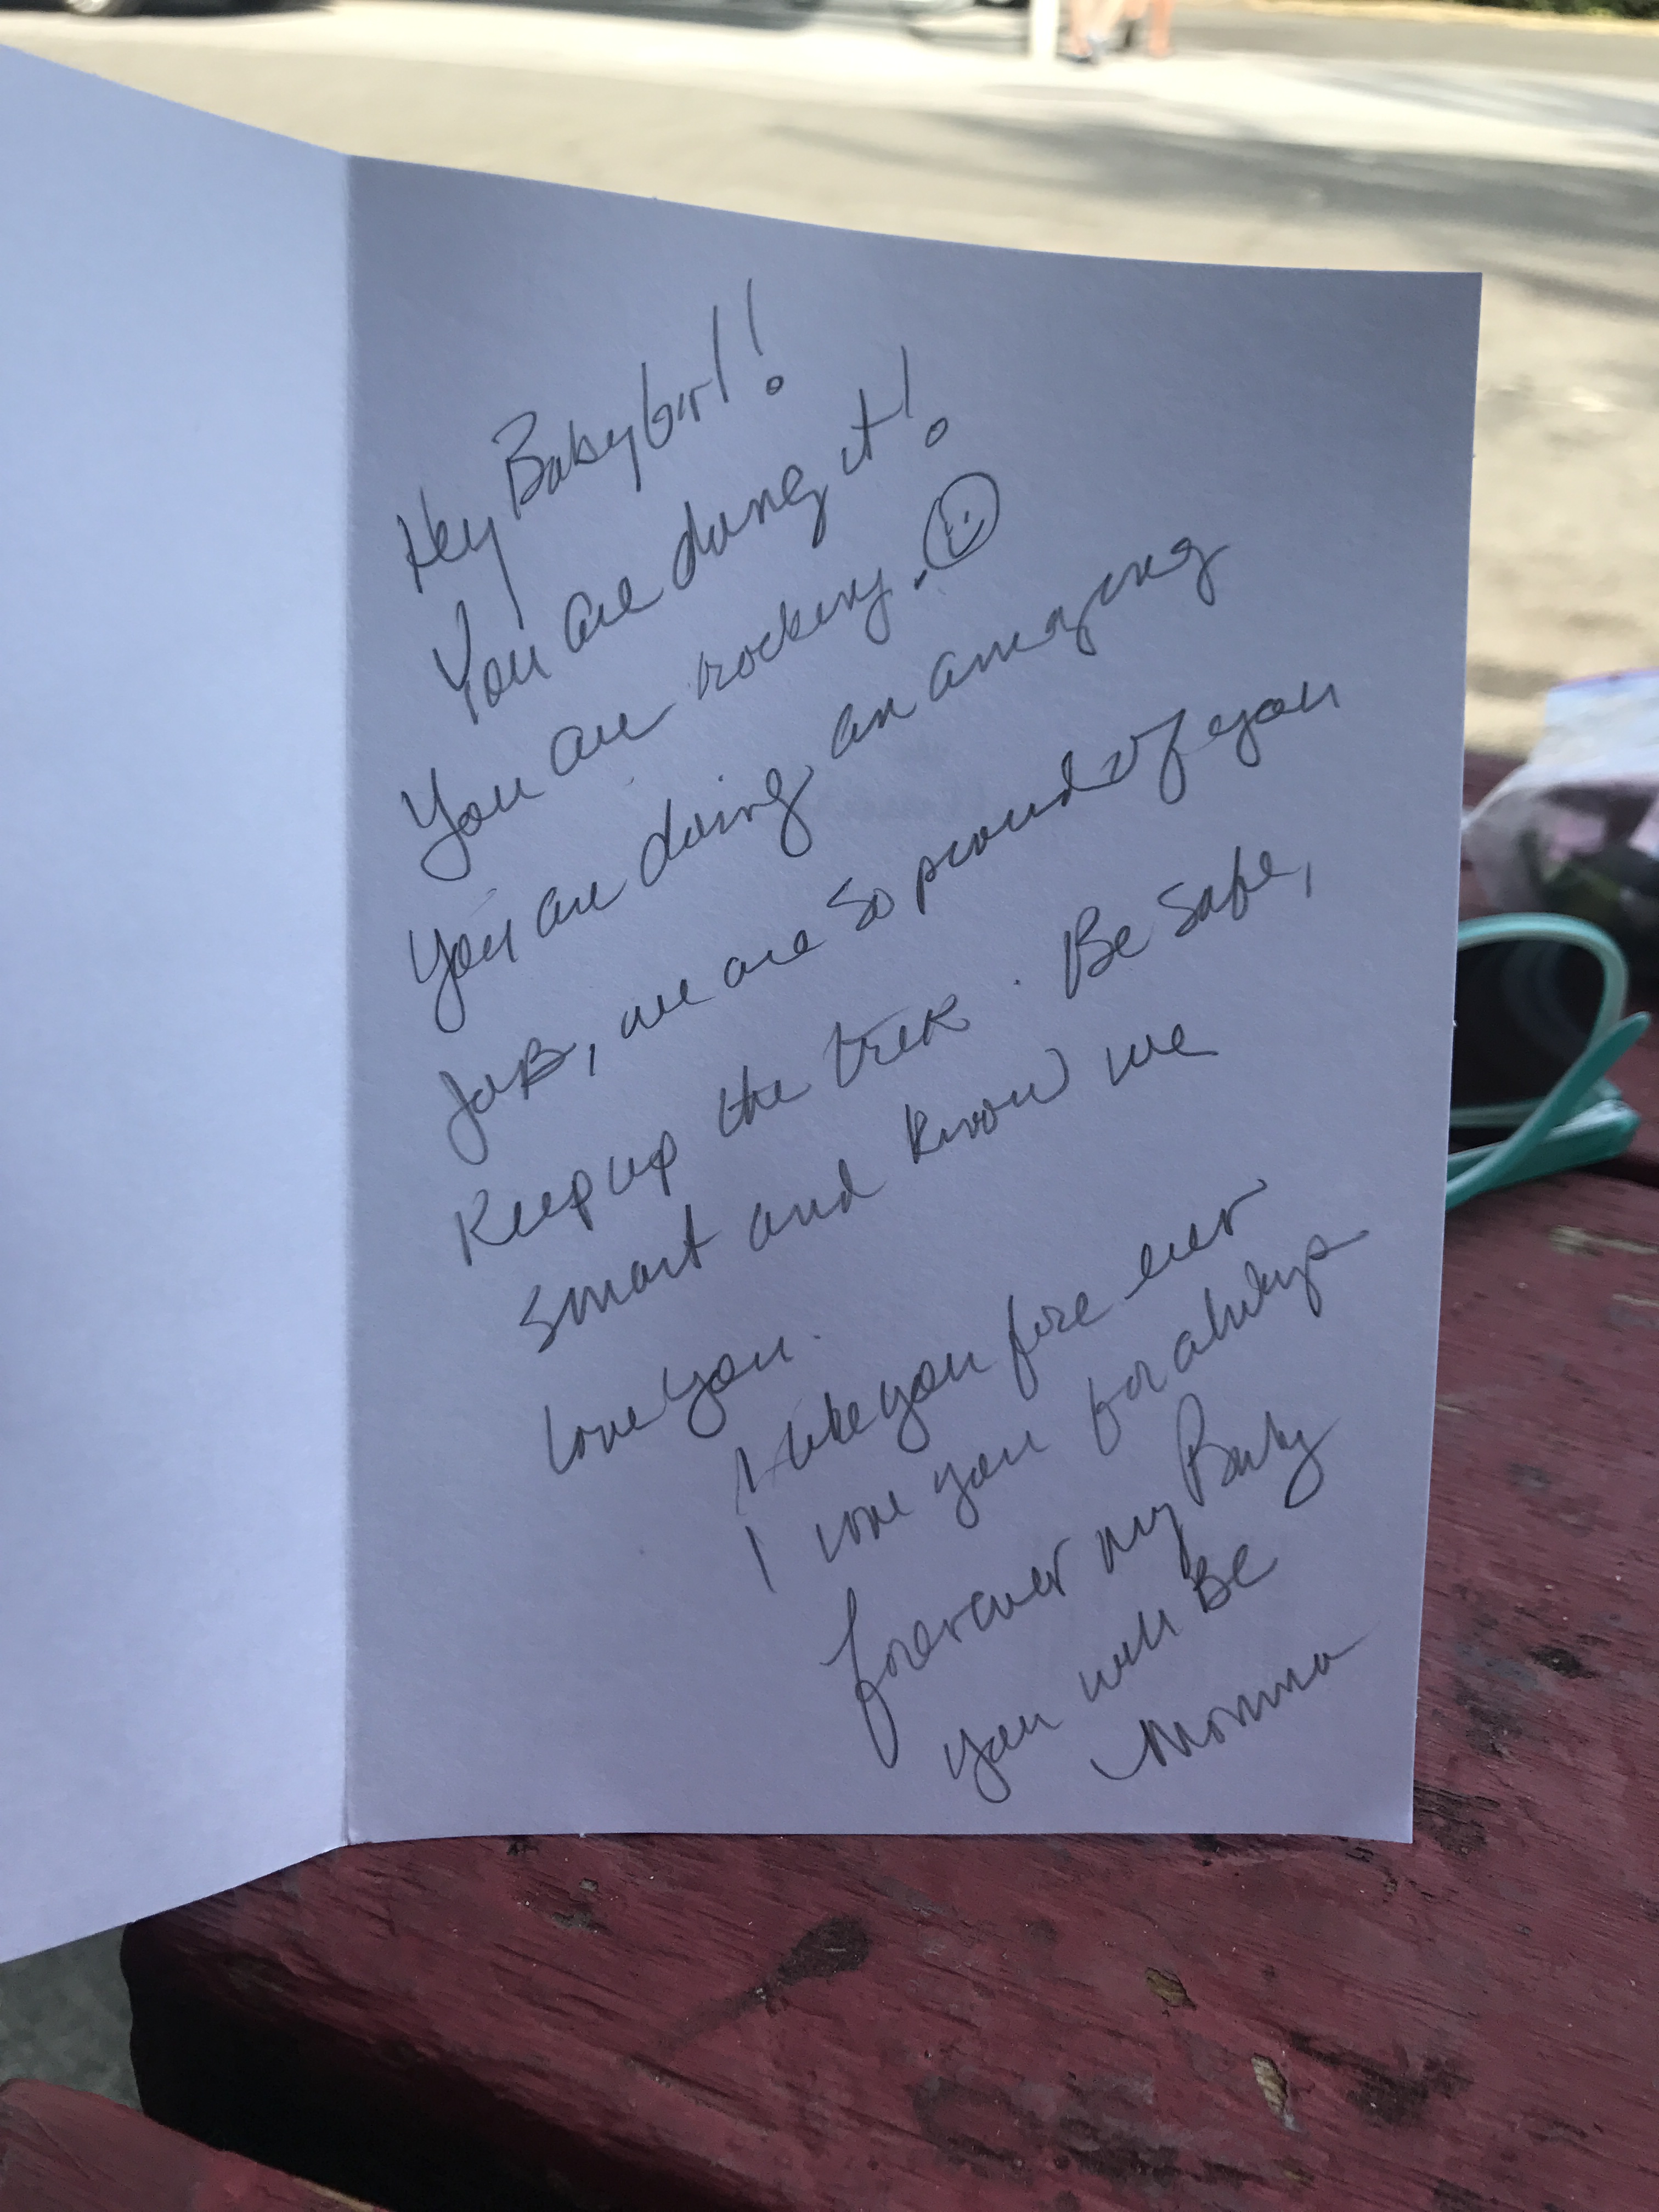 Hey Babygirl!
You are doing it!
You are rocking. ☺
You are doing an amazing
JoB, we are so proud of you
Keep up the trek. Be safe,
smart and know we
love you.
I like you fore ever
I love you for always
forever my Baby
you will Be
Momma